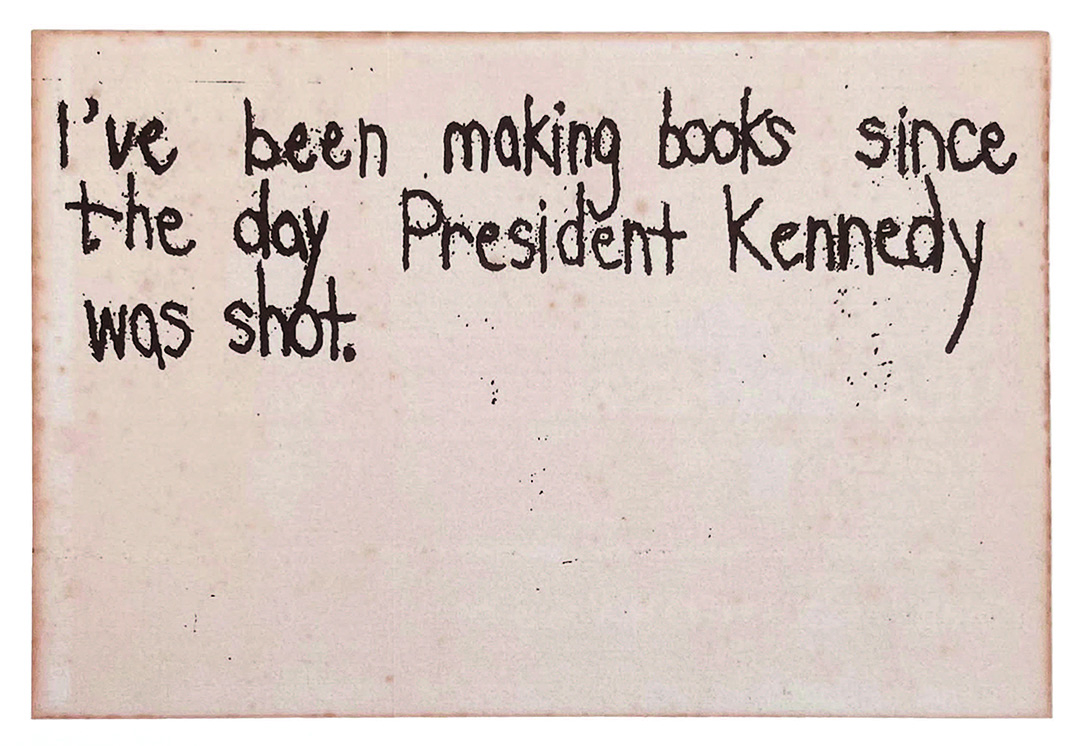 I've been making books since
the day President Kennedy
was shot.